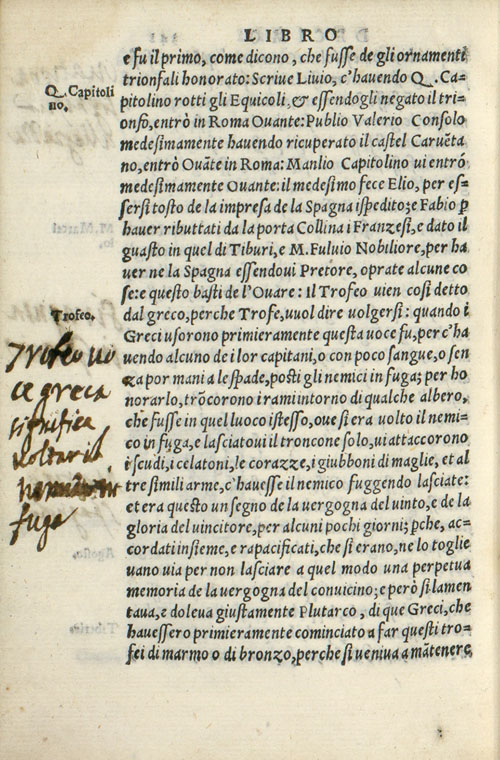 LIBRO
e fu il primo, come dicono, che fusse de gli ornamenti
trionfali honorato: Scriue Liuio, c'hauendo Q. Ca-
Q. Capitoli
no.
pitolino rotti gli Equicoli, & essendogli negato il tri-
onfo, entrò in Roma Ouante: Publio Valerio Consolo
medesimamente hauendo ricuperato il castel Caruēta
no, entrò Ouāte in Roma: Manlio Capitolino ui entrò
medesimamente Ouante: il medesimo fece Elio, per es-
sersi tosto de la impresa de la Spagna ispedito; e Fabio p
hauer ributtati da la porta Collina i Franzesi, e dato il
guasto in quel di Tiburi, e M. Fuluio Nobiliore, per ha
uer ne la Spagna essendoui Pretore, oprate alcune co
se: e questo basti de l'Ouare: Il Trofeo uien così detto
Trofeo.
dal greco, perche Trofe, uuol dire uolgersi: quando i
Greci usorono primieramente questa uoce fu, per c'ha
uendo alcuno de i lor capitani, o con poco sangue, o sen
za por mani a le spade, posti gli nemici in fuga; per ho
norarlo, trōcorono i rami intorno di qualche albero,
che fusse in quel luoco istesso, oue si era uolto il nemi-
co in fuga, e lasciatoui il troncone solo, ui attaccorono
i scudi, i celatoni, le corazze, i giubboni di maglie, et al
tre simili arme, c'hauesse il nemico fuggendo lasciate:
et era questo un segno de la uergogna del uinto, e de la
gloria del uincitore, per alcuni pochi giorni; pche, ac-
cordati insieme, e rapacificati, che si erano, ne lo toglie
uano uia per non lasciare a quel modo una perpetua
memoria de la uergogna del conuicino; e però si lamen
taua, e doleua giustamente Plutarco, di que Greci, che
hauessero primieramente cominciato a far questi tro-
fei di marmo o di bronzo, perche si ueniua a mātenere
Trofeo uo
ce greca
significa
uoltar il
in
fuga